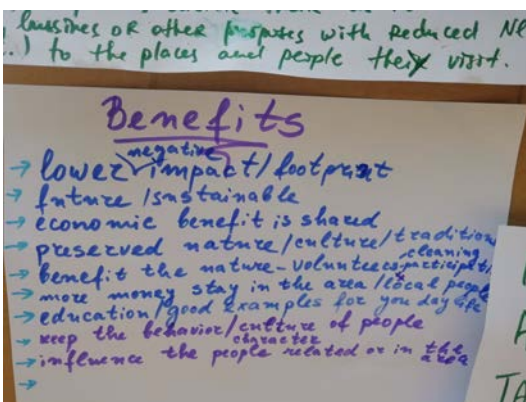 bussines or other purposes with reduced NE
.) to the places and people they visit.
Benefits
→ lower negative impact/footprint
→ future/sustainable
→ economic benefit is shared
→ preserved nature/culture/tradition
cleaning
→ benefit the nature-volunteers participati
→ more money stay in the area/local people
→ education/good examples for you day life
→ keep the behavior/culture of people
character
→ influence the people related or in the
area
→
TA